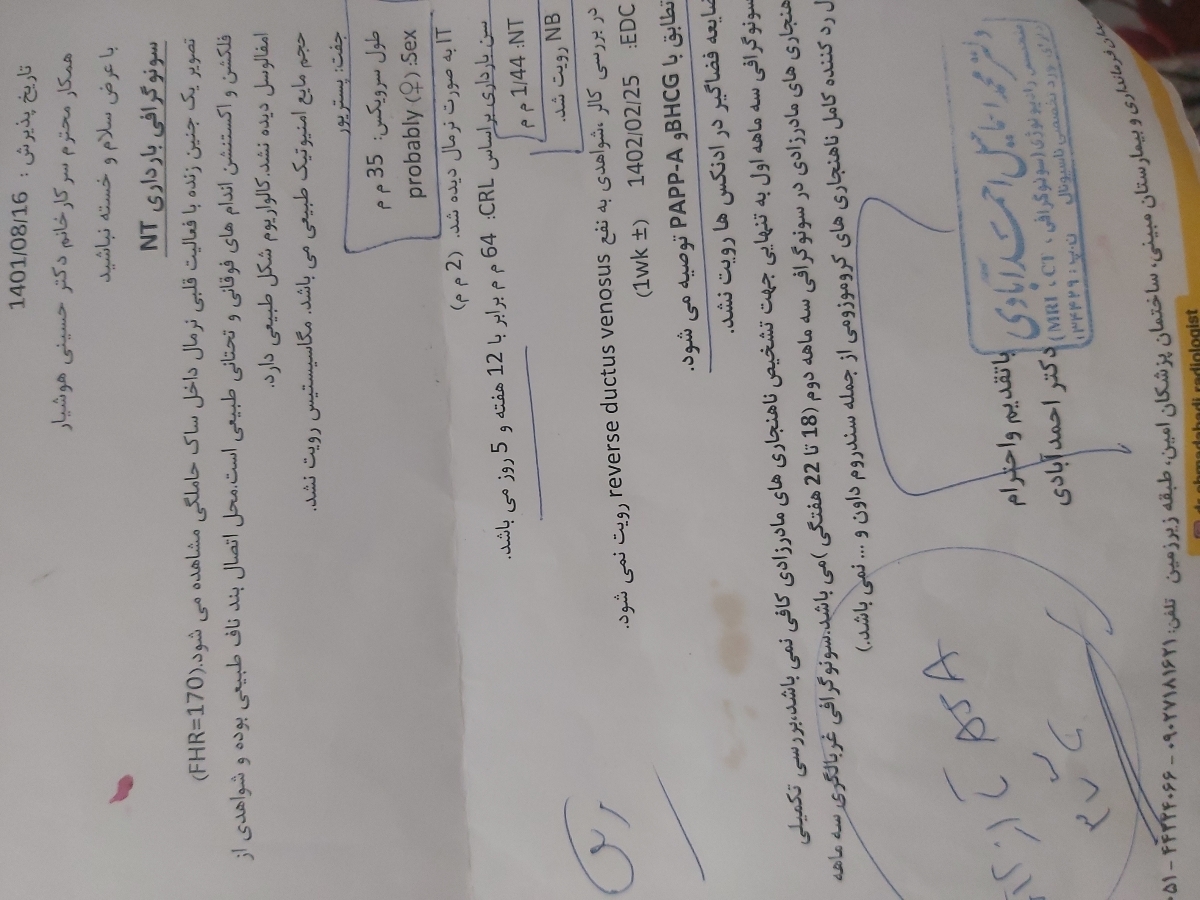 تاریخ پذیرش : 1401/08/16
همکار محترم سرکار خانم دکتر حسینی هوشیار
با عرض سلام و خسته نباشید
سونوگرافی بارداری NT
تصویر یک جنین زنده با فعالیت قلبی نرمال داخل ساک حاملگی مشاهده می شود.(FHR=170)
فلکشن و اکستنشن اندام های فوقانی و تحتانی طبیعی است.محل اتصال بند ناف طبیعی بوده و شواهدی از
امفالوسل دیده نشد.کالواریوم شکل طبیعی دارد.
حجم مایع امنیوتیک طبیعی می باشد. مگاسیستیس رویت نشد.
جفت: پستریور
طول سرویکس: 35 م م
Sex: (♀) probably
IT به صورت نرمال دیده شد. (2 م م)
سن بارداری براساس CRL: 64 م م برابر با 12 هفته و 5 روز می باشد.
NT: 1/44 م م
NB رویت شد.
در بررسی کالر ،شواهدی به نفع reverse ductus venosus رویت نمی شود.
EDC: 1402/02/25 (± 1wk)
تطابق با BHCG و PAPP-A توصیه می شود.
ضایعه فضاگیر در ادنکس ها رویت نشد.
سونوگرافی سه ماهه اول به تنهایی جهت تشخیص ناهنجاری های مادرزادی کافی نمی باشد،بررسی تکمیلی
هنجاری های مادرزادی در سونوگرافی سه ماهه دوم (18 تا 22 هفتگی )می باشد.سونوگرافی غربالگری سه ماهه
ل رد کننده کامل ناهنجاری های کروموزومی از جمله سندروم داون و ... نمی باشد.)
با تقدیم و احترام
دکتر احمدآبادی
دکتر محمد اسماعیل احمدآبادی
متخصص رادیولوژی (سونوگرافی ، MRI ، CT)
ن.پ : ۱۳۴۴۲۹
ASA
فرمانداری و بیمارستان مبینی، ساختمان پزشکان امین، طبقه زیرزمین تلفن: ۰۹۰۲۷۱۸۱۶۲۱ - ۴۴۲۲۴۰۶۶ - ۰۵۱
dr.ahmadabadi.radiologist